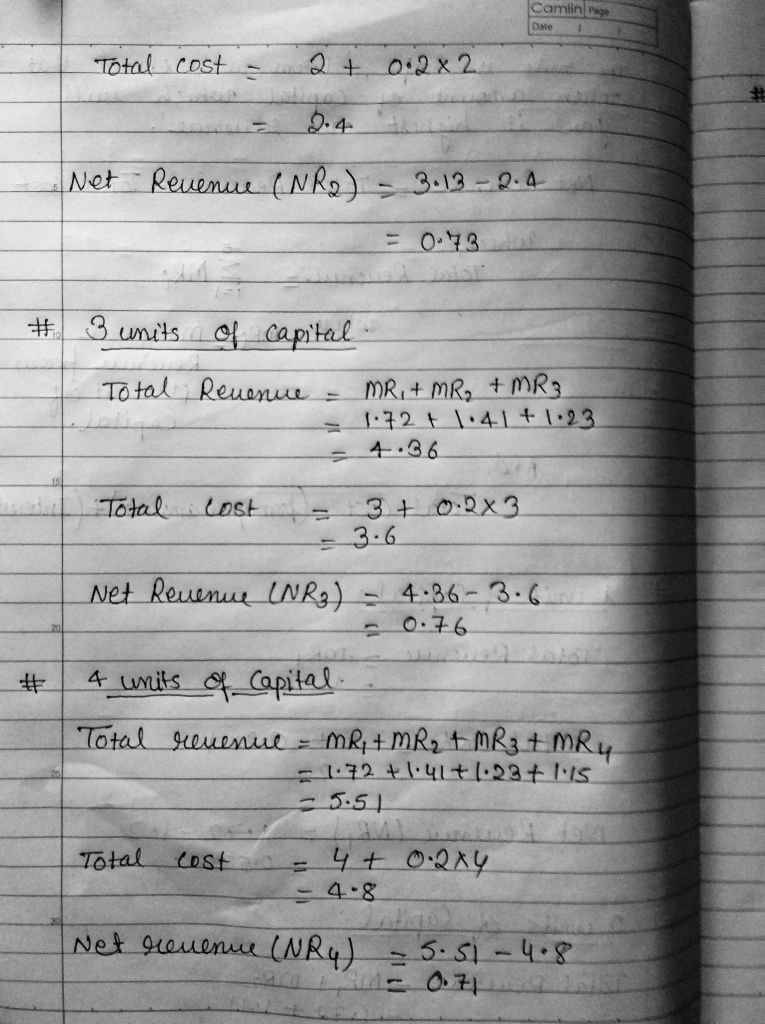 Camlin Page
Date / /
Total cost = 2 + 0.2 x 2
= 2.4
5 Net Revenue (NR2) = 3.13 - 2.4
= 0.73
# 10 3 units of capital.
Total Revenue = MR1 + MR2 + MR3
= 1.72 + 1.41 + 1.23
= 4.36
15
Total cost = 3 + 0.2 x 3
= 3.6
Net Revenue (NR3) = 4.36 - 3.6
20 = 0.76
# 4 units of Capital.
Total revenue = MR1 + MR2 + MR3 + MR4
25 = 1.72 + 1.41 + 1.23 + 1.15
= 5.51
Total cost = 4 + 0.2 x 4
= 4.8
30
Net revenue (NR4) = 5.51 - 4.8
= 0.71
#